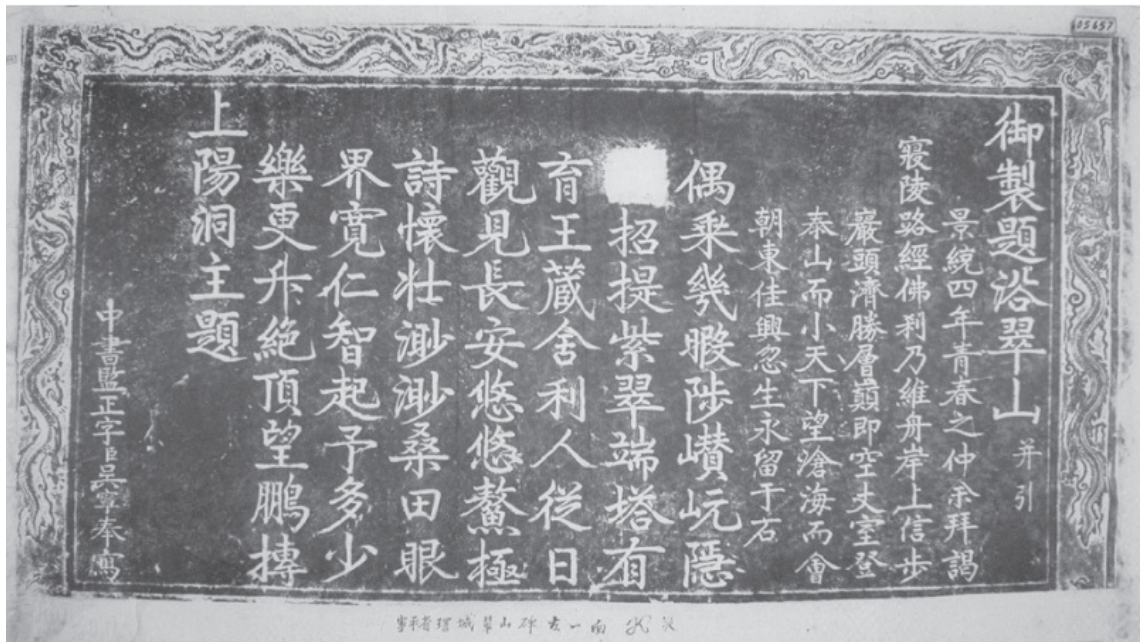 05657
御製題浴翠山 并引
景統四年青春之仲余拜謁
寢陵路經佛剎乃維舟岸上信步
巖頭濟勝層巔即空丈室登
泰山而小天下望滄海而會
朝東佳興忽生永留于石
偶乘幾暇陟巑岏隱
招提紫翠端塔有
育王藏舍利人從日
觀見長安悠悠鰲極
詩懷壯渺渺桑田眼
界寬仁智起予多少
樂更升絕頂望鵬摶
上陽洞主題
中書監正字臣吳寧奉寫